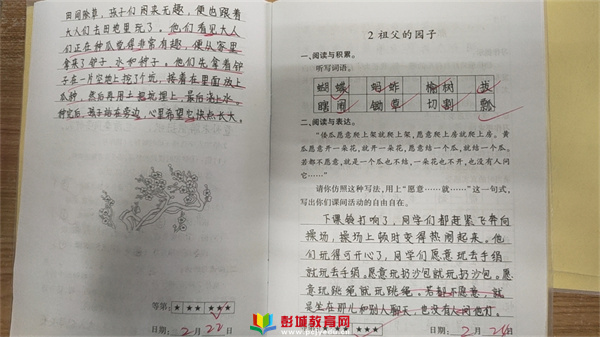 田间除草,孩子们闲来无趣,便也跟着
大人们去田地里玩了。他们看见大人
们正在种瓜觉得非常有趣,便从家里
拿来了铲子、水和种子。他们先拿着铲
子在一片空地上挖了个坑,接着在里面放上
瓜种,然后再用土把坑埋上,最后浇上水。
种完后,孩子站在旁边,心里希望它快点长大。
等第:★ ★★ ★★★
日期:2月22日
2 祖父的园子
一、阅读与积累。
听写词语。
蝴蝶 蚂蚱 榆树 拔
瞎闹 锄草 切割 瓢
二、阅读与表达。
“倭瓜愿意爬上架就爬上架,愿意爬上房就爬上房。黄
瓜愿意开一朵花,就开一朵花,愿意结一个瓜,就结一个瓜。
若都不愿意,就是一个瓜也不结,一朵花也不开,也没有人问
它……”
请你仿照这种写法,用上“愿意……就……”这一句式,
写出你们课间活动的自由自在。
下课铃打响了,同学们都赶紧飞奔向
操场,操场上顿时变得热闹起来。他
们玩得可开心了,同学们愿意玩丢手绢
就玩丢手绢。愿意玩扔沙包就玩扔沙包。愿
意玩跳绳就玩跳绳。若都不愿意,就
是坐在那儿和别人聊天,也没有人问他们。
★★★
日期:2月 日
彭城教育网
www.pcjyedu.cn